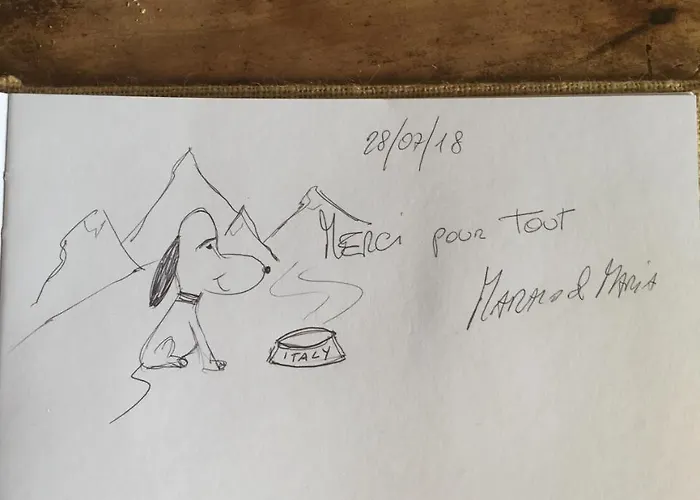 28/07/18
Merci pour tout
& Maria
ITALY